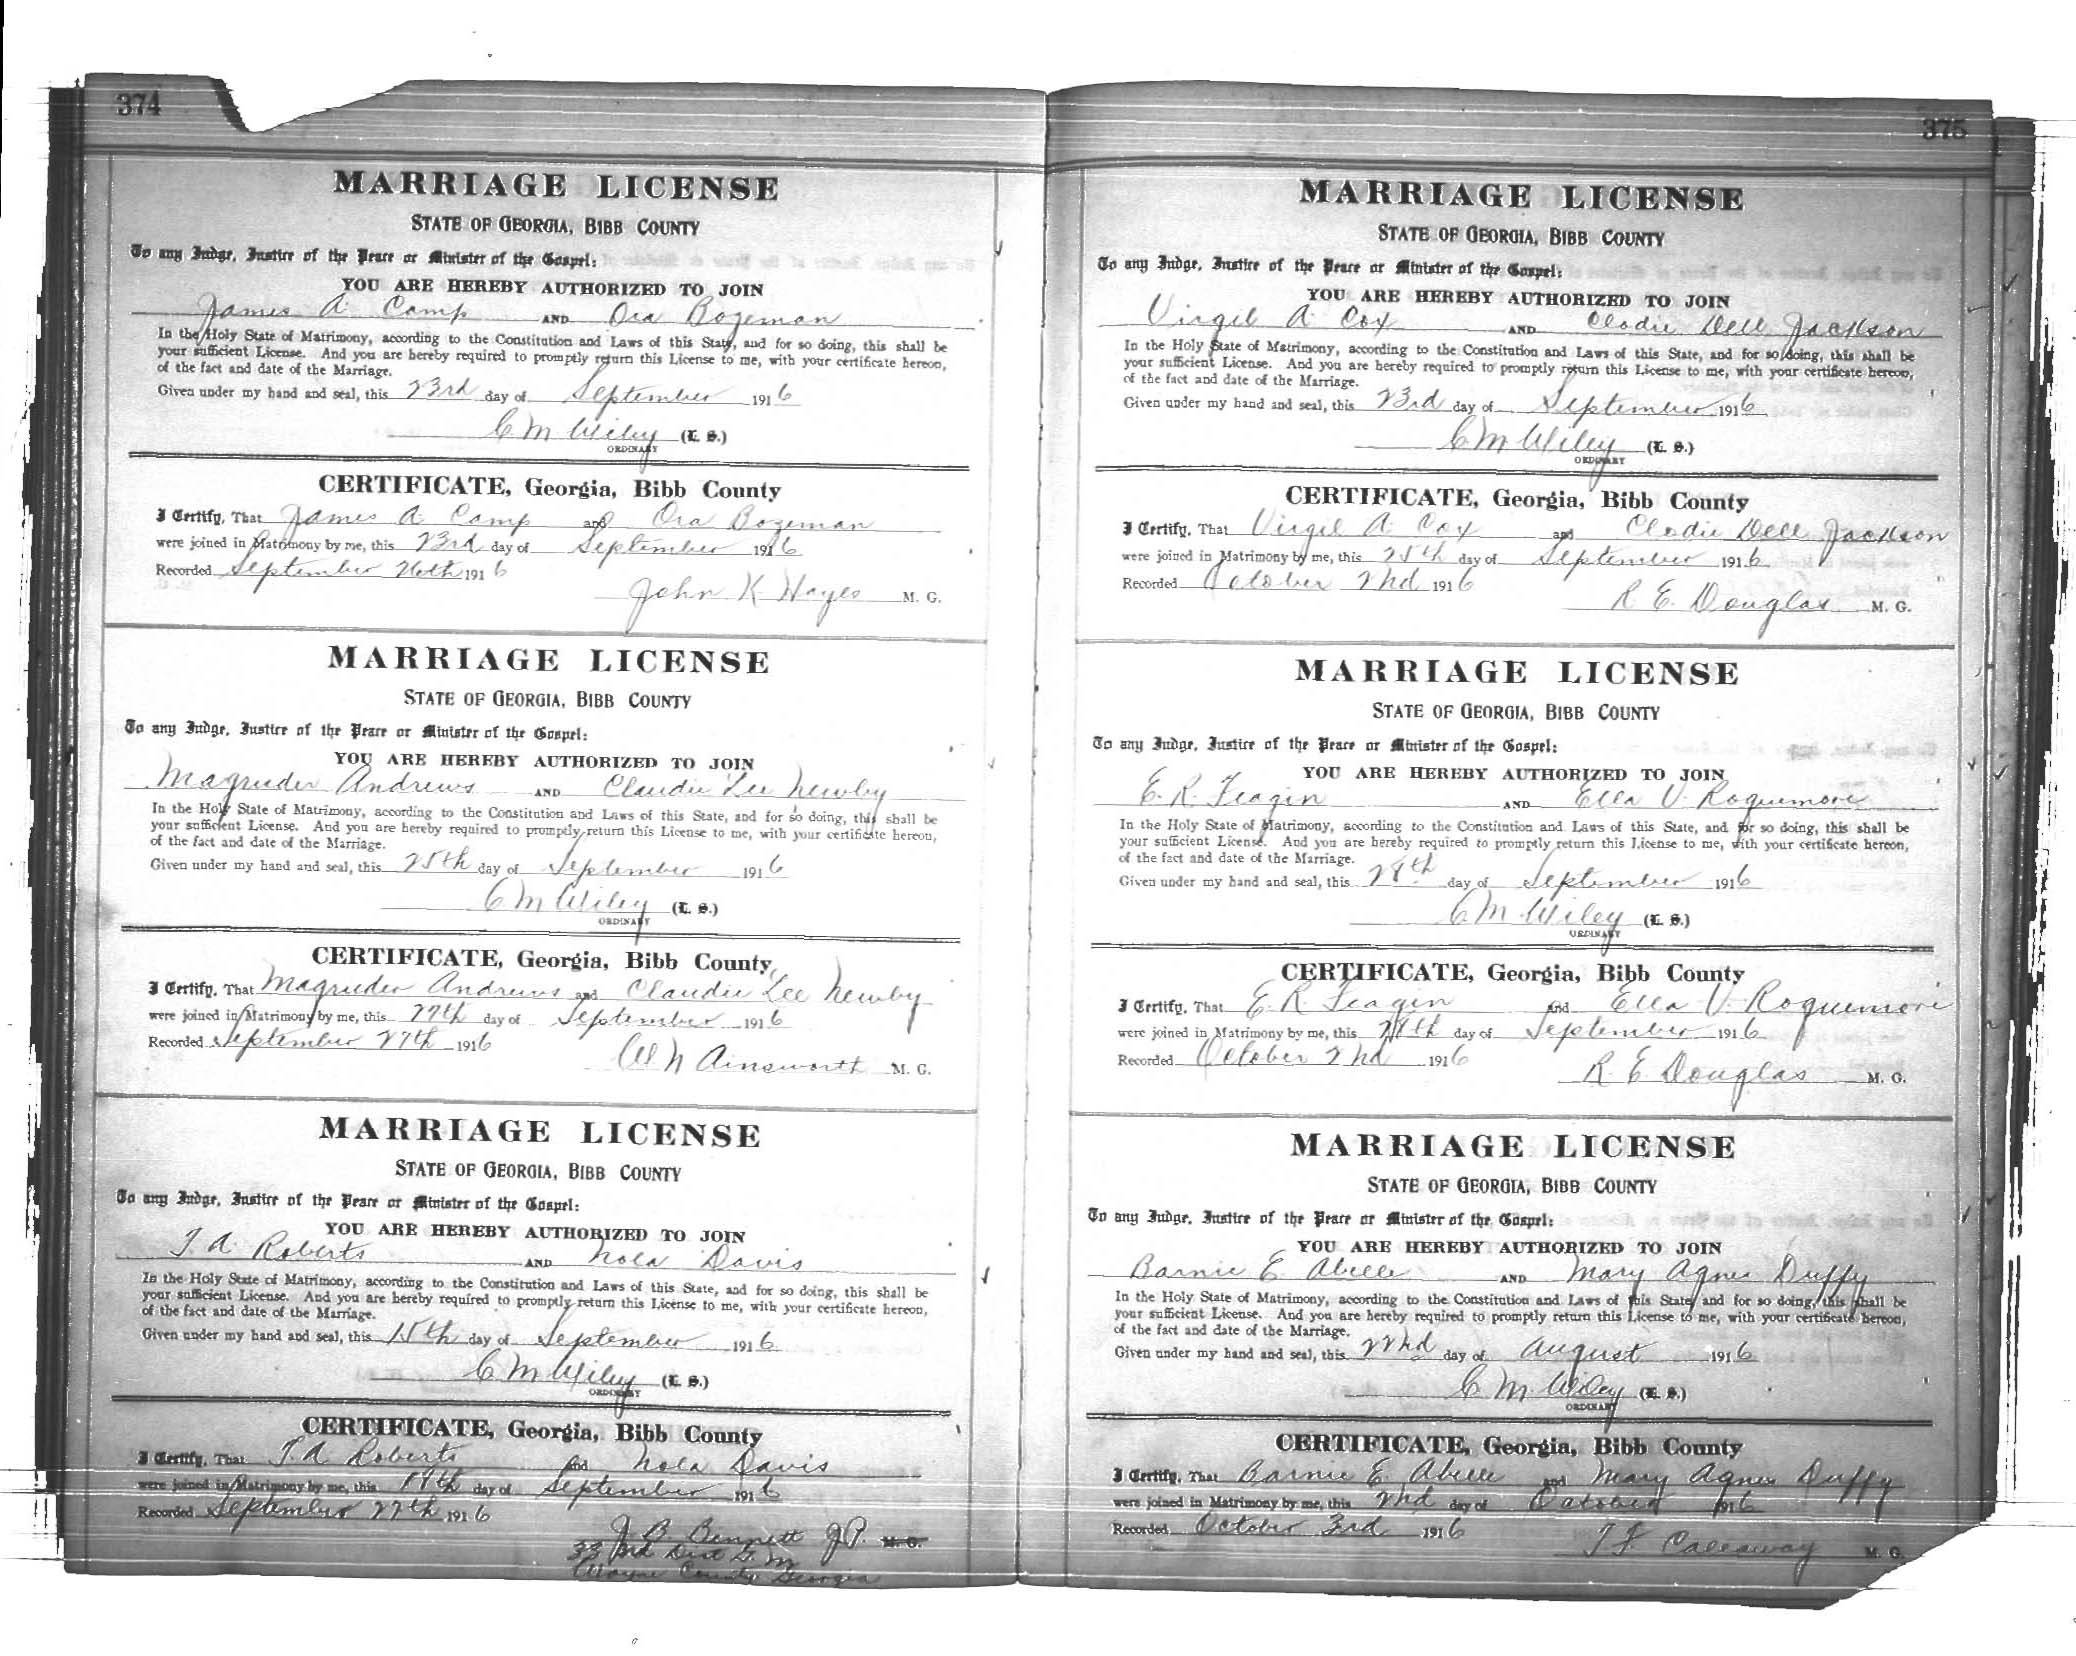 374
MARRIAGE LICENSE
STATE OF GEORGIA, BIBB COUNTY
To any Judge, Justice of the Peace or Minister of the Gospel:
YOU ARE HEREBY AUTHORIZED TO JOIN
James A. Camp AND Ora Bozeman
In the Holy State of Matrimony, according to the Constitution and Laws of this State, and for so doing, this shall be
your sufficient License. And you are hereby required to promptly return this License to me, with your certificate hereon,
of the fact and date of the Marriage.
Given under my hand and seal, this 23rd day of September 1916
C M Wiley (L. S.)
ORDINARY
CERTIFICATE, Georgia, Bibb County
I Certify, That James A. Camp and Ora Bozeman
were joined in Matrimony by me, this 23rd day of September 1916
Recorded September 26th 1916
John K Hayes M. G.
MARRIAGE LICENSE
STATE OF GEORGIA, BIBB COUNTY
To any Judge, Justice of the Peace or Minister of the Gospel:
YOU ARE HEREBY AUTHORIZED TO JOIN
Magruder Andrews AND Claudie Lee Newby
In the Holy State of Matrimony, according to the Constitution and Laws of this State, and for so doing, this shall be
your sufficient License. And you are hereby required to promptly return this License to me, with your certificate hereon,
of the fact and date of the Marriage.
Given under my hand and seal, this 25th day of September 1916
C M Wiley (L. S.)
ORDINARY
CERTIFICATE, Georgia, Bibb County
I Certify, That Magruder Andrews and Claudie Lee Newby
were joined in Matrimony by me, this 27th day of September 1916
Recorded September 27th 1916
W N Ainsworth M. G.
MARRIAGE LICENSE
STATE OF GEORGIA, BIBB COUNTY
To any Judge, Justice of the Peace or Minister of the Gospel:
YOU ARE HEREBY AUTHORIZED TO JOIN
T. A. Roberts AND Nola Davis
In the Holy State of Matrimony, according to the Constitution and Laws of this State, and for so doing, this shall be
your sufficient License. And you are hereby required to promptly return this License to me, with your certificate hereon,
of the fact and date of the Marriage.
Given under my hand and seal, this 15th day of September 1916
C M Wiley (L. S.)
ORDINARY
CERTIFICATE, Georgia, Bibb County
I Certify, That T. A Roberts and Nola Davis
were joined in Matrimony by me, this 17th day of September 1916
Recorded September 27th 1916
J B Bennett J.P. M. G.
333rd Dist G. M
Wayne County Georgia
375
MARRIAGE LICENSE
STATE OF GEORGIA, BIBB COUNTY
To any Judge, Justice of the Peace or Minister of the Gospel:
YOU ARE HEREBY AUTHORIZED TO JOIN
Virgil A. Cox AND Clodie Dell Jackson
In the Holy State of Matrimony, according to the Constitution and Laws of this State, and for so doing, this shall be
your sufficient License. And you are hereby required to promptly return this License to me, with your certificate hereon,
of the fact and date of the Marriage.
Given under my hand and seal, this 23rd day of September 1916
C M Wiley (L. S.)
ORDINARY
CERTIFICATE, Georgia, Bibb County
I Certify, That Virgil A. Cox and Clodie Dell Jackson
were joined in Matrimony by me, this 25th day of September 1916
Recorded October 2nd 1916
R E. Douglas M. G.
MARRIAGE LICENSE
STATE OF GEORGIA, BIBB COUNTY
To any Judge, Justice of the Peace or Minister of the Gospel:
YOU ARE HEREBY AUTHORIZED TO JOIN
E. R. Feagin AND Ella V. Roquemore
In the Holy State of Matrimony, according to the Constitution and Laws of this State, and for so doing, this shall be
your sufficient License. And you are hereby required to promptly return this License to me, with your certificate hereon,
of the fact and date of the Marriage.
Given under my hand and seal, this 28th day of September 1916
C M Wiley (L. S.)
ORDINARY
CERTIFICATE, Georgia, Bibb County
I Certify, That E. R. Feagin and Ella V. Roquemore
were joined in Matrimony by me, this 28th day of September 1916
Recorded October 2nd 1916
R. E Douglas M. G.
MARRIAGE LICENSE
STATE OF GEORGIA, BIBB COUNTY
To any Judge, Justice of the Peace or Minister of the Gospel:
YOU ARE HEREBY AUTHORIZED TO JOIN
Barnie E. Abelle AND Mary Agnes Duffy
In the Holy State of Matrimony, according to the Constitution and Laws of this State, and for so doing, this shall be
your sufficient License. And you are hereby required to promptly return this License to me, with your certificate hereon,
of the fact and date of the Marriage.
Given under my hand and seal, this 22nd day of August 1916
C M Wiley (L. S.)
ORDINARY
CERTIFICATE, Georgia, Bibb County
I Certify, That Barnie E. Abelle and Mary Agnes Duffy
were joined in Matrimony by me, this 2nd day of October 1916
Recorded October 3rd 1916
T F Callaway M. G.